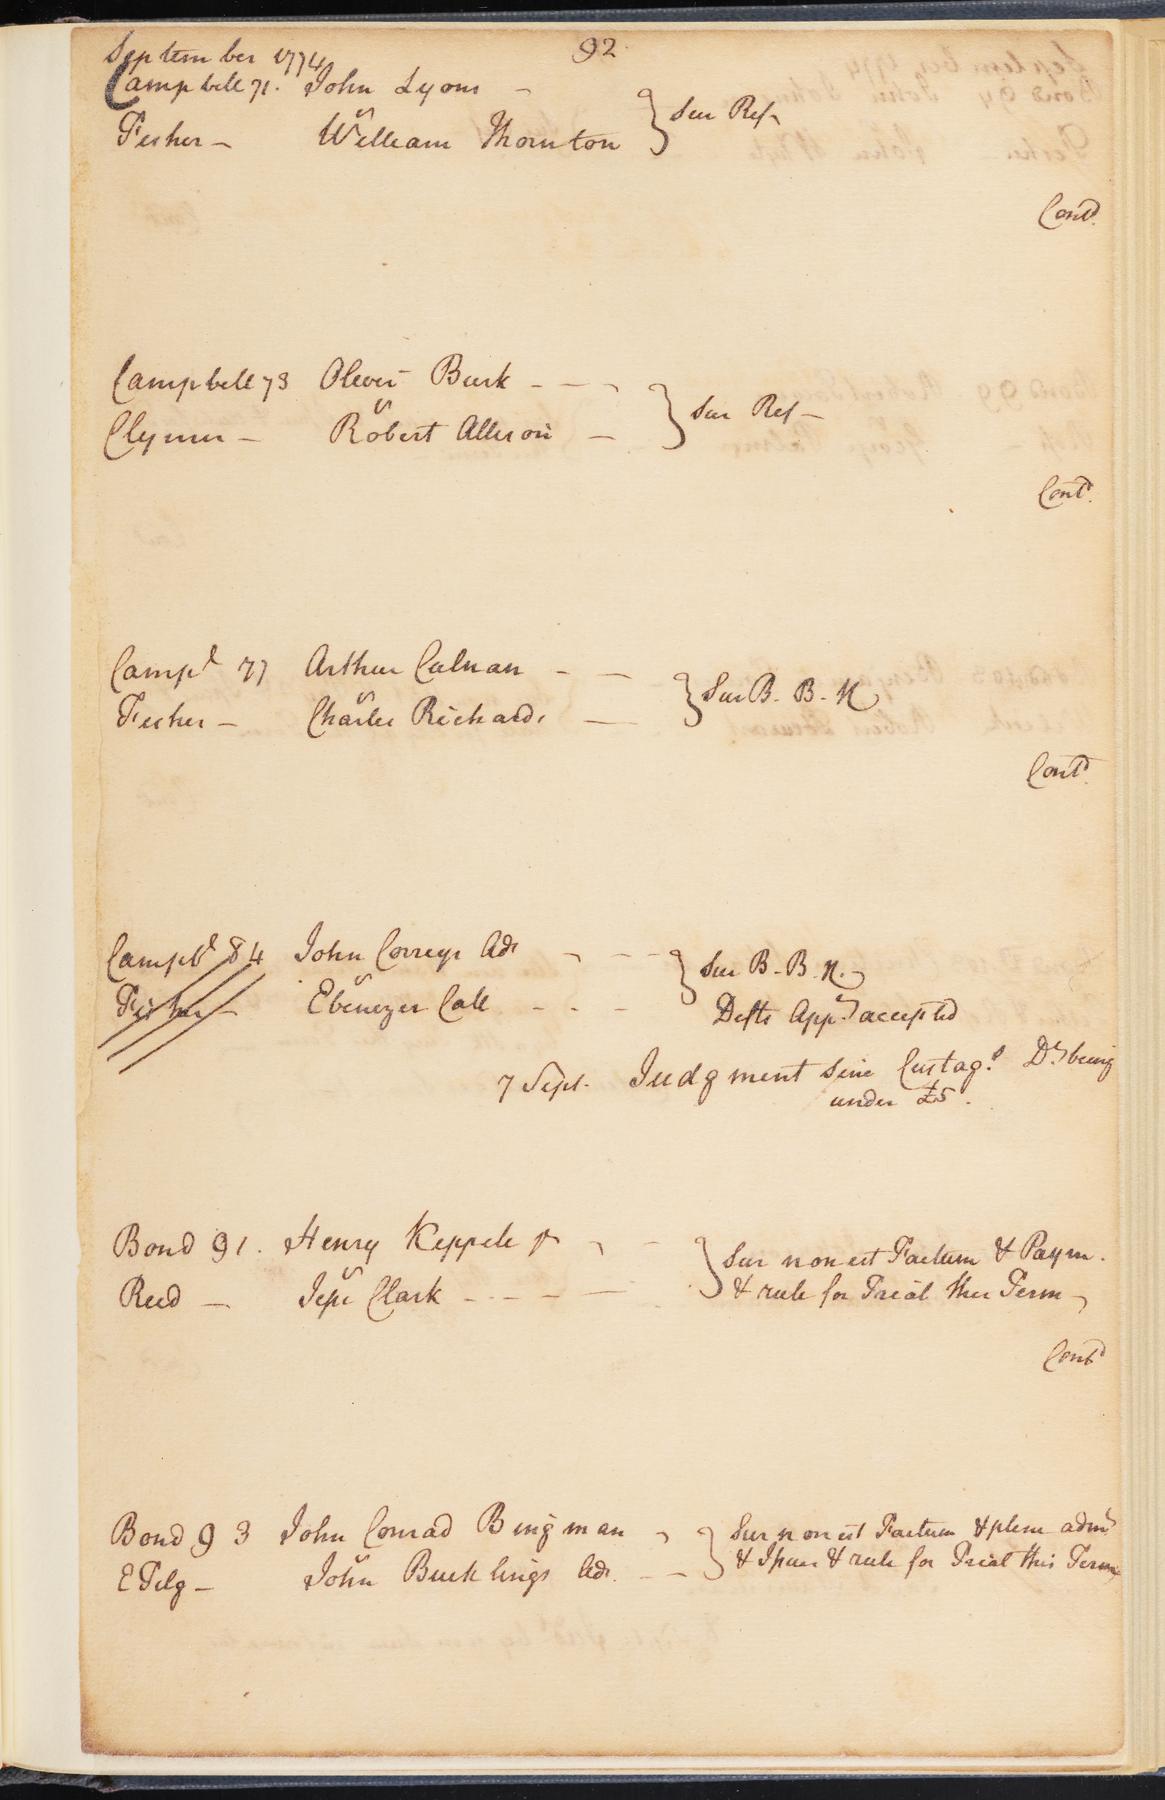 92
September 1774
Campbell 71. John Lyons -
vs
Fisher - William Thornton } Sur Ref
Contd.
Campbell 73 Oliver Burk - - -
vs
Clymer - Robert Allison - } Sur Ref -
Contd.
Campl 77 Arthur Calnan - -
vs
Fisher - Charles Richards - } Sur B. B. N
Contd.
Campbl 84 John Correys Adr - - -
vs
Fisher - Ebenezer Call - - - } Sur B. B. N.
Defts App accepted
7 Sept. Judgment sine Custags. Dt being
under £5.
Bond 91. Henry Keppele Jr - -
vs
Reed - Jesse Clark - - - - } Sur non est Factum & Paym.
& rule for Trial this Term
Contd
Bond 93 John Conrad Bingman -
vs
E Tilg - John Bucklings Adr. - - } Sur non est Factum & plene admt
& Issues & rule for Trial this Term